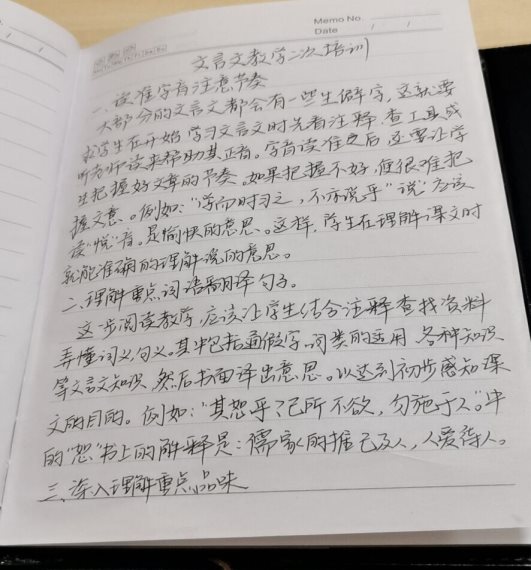 Memo No.
Date / /
文言文教学二次培训
一、读准字音注意节奏
大部分的文言文都会有一些生僻字，这就要
求学生在开始学习文言文时先看注释，查工具或
听老师读来帮助其正音。字音读准之后，还要让学
生把握好文章的节奏。如果把握不好，但很难把
握文意。例如："学而时习之，不亦说乎""说"应该
读"悦"音。是愉快的意思。这样，学生在理解课文时
就能准确的理解说的意思。
二、理解重点词语翻译句子。
这步阅读教学，应该让学生结合注释查找资料
弄懂词义句义。其中包括通假字、词类的活用、各种知识
等文言文知识，然后书面译出意思。以达到初步感知课
文的目的。例如："其恕乎？己所不欲，勿施于人。"中
的"恕"书上的解释是：儒家的推己及人，仁爱待人。
三、深入理解重点品味